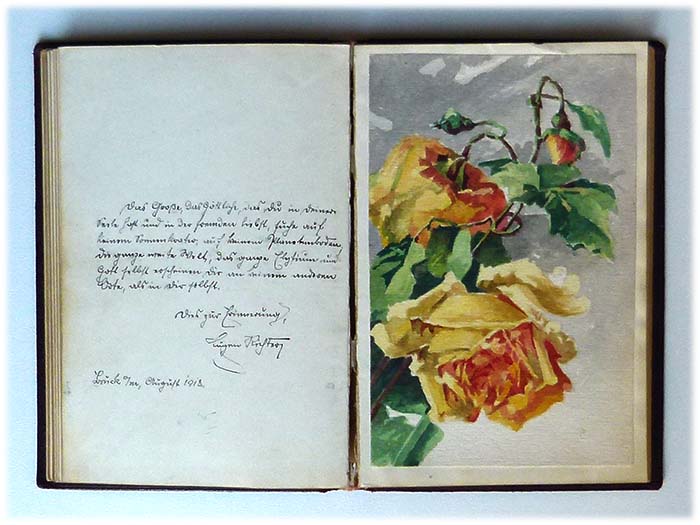 Das Große, das Göttliche, das Du in deiner
Seele hast und in der fremden liebst, suche auf
keinem Sonnenkrater, auf keinem Planetenboden,
die ganze zweite Welt, das ganze Elysium und
Gott selbst erscheinen Dir an keinem anderen
Orte, als in Dir selbst.
Dies zur Erinnerung,
Eugen Richter
Bruck a/M, August